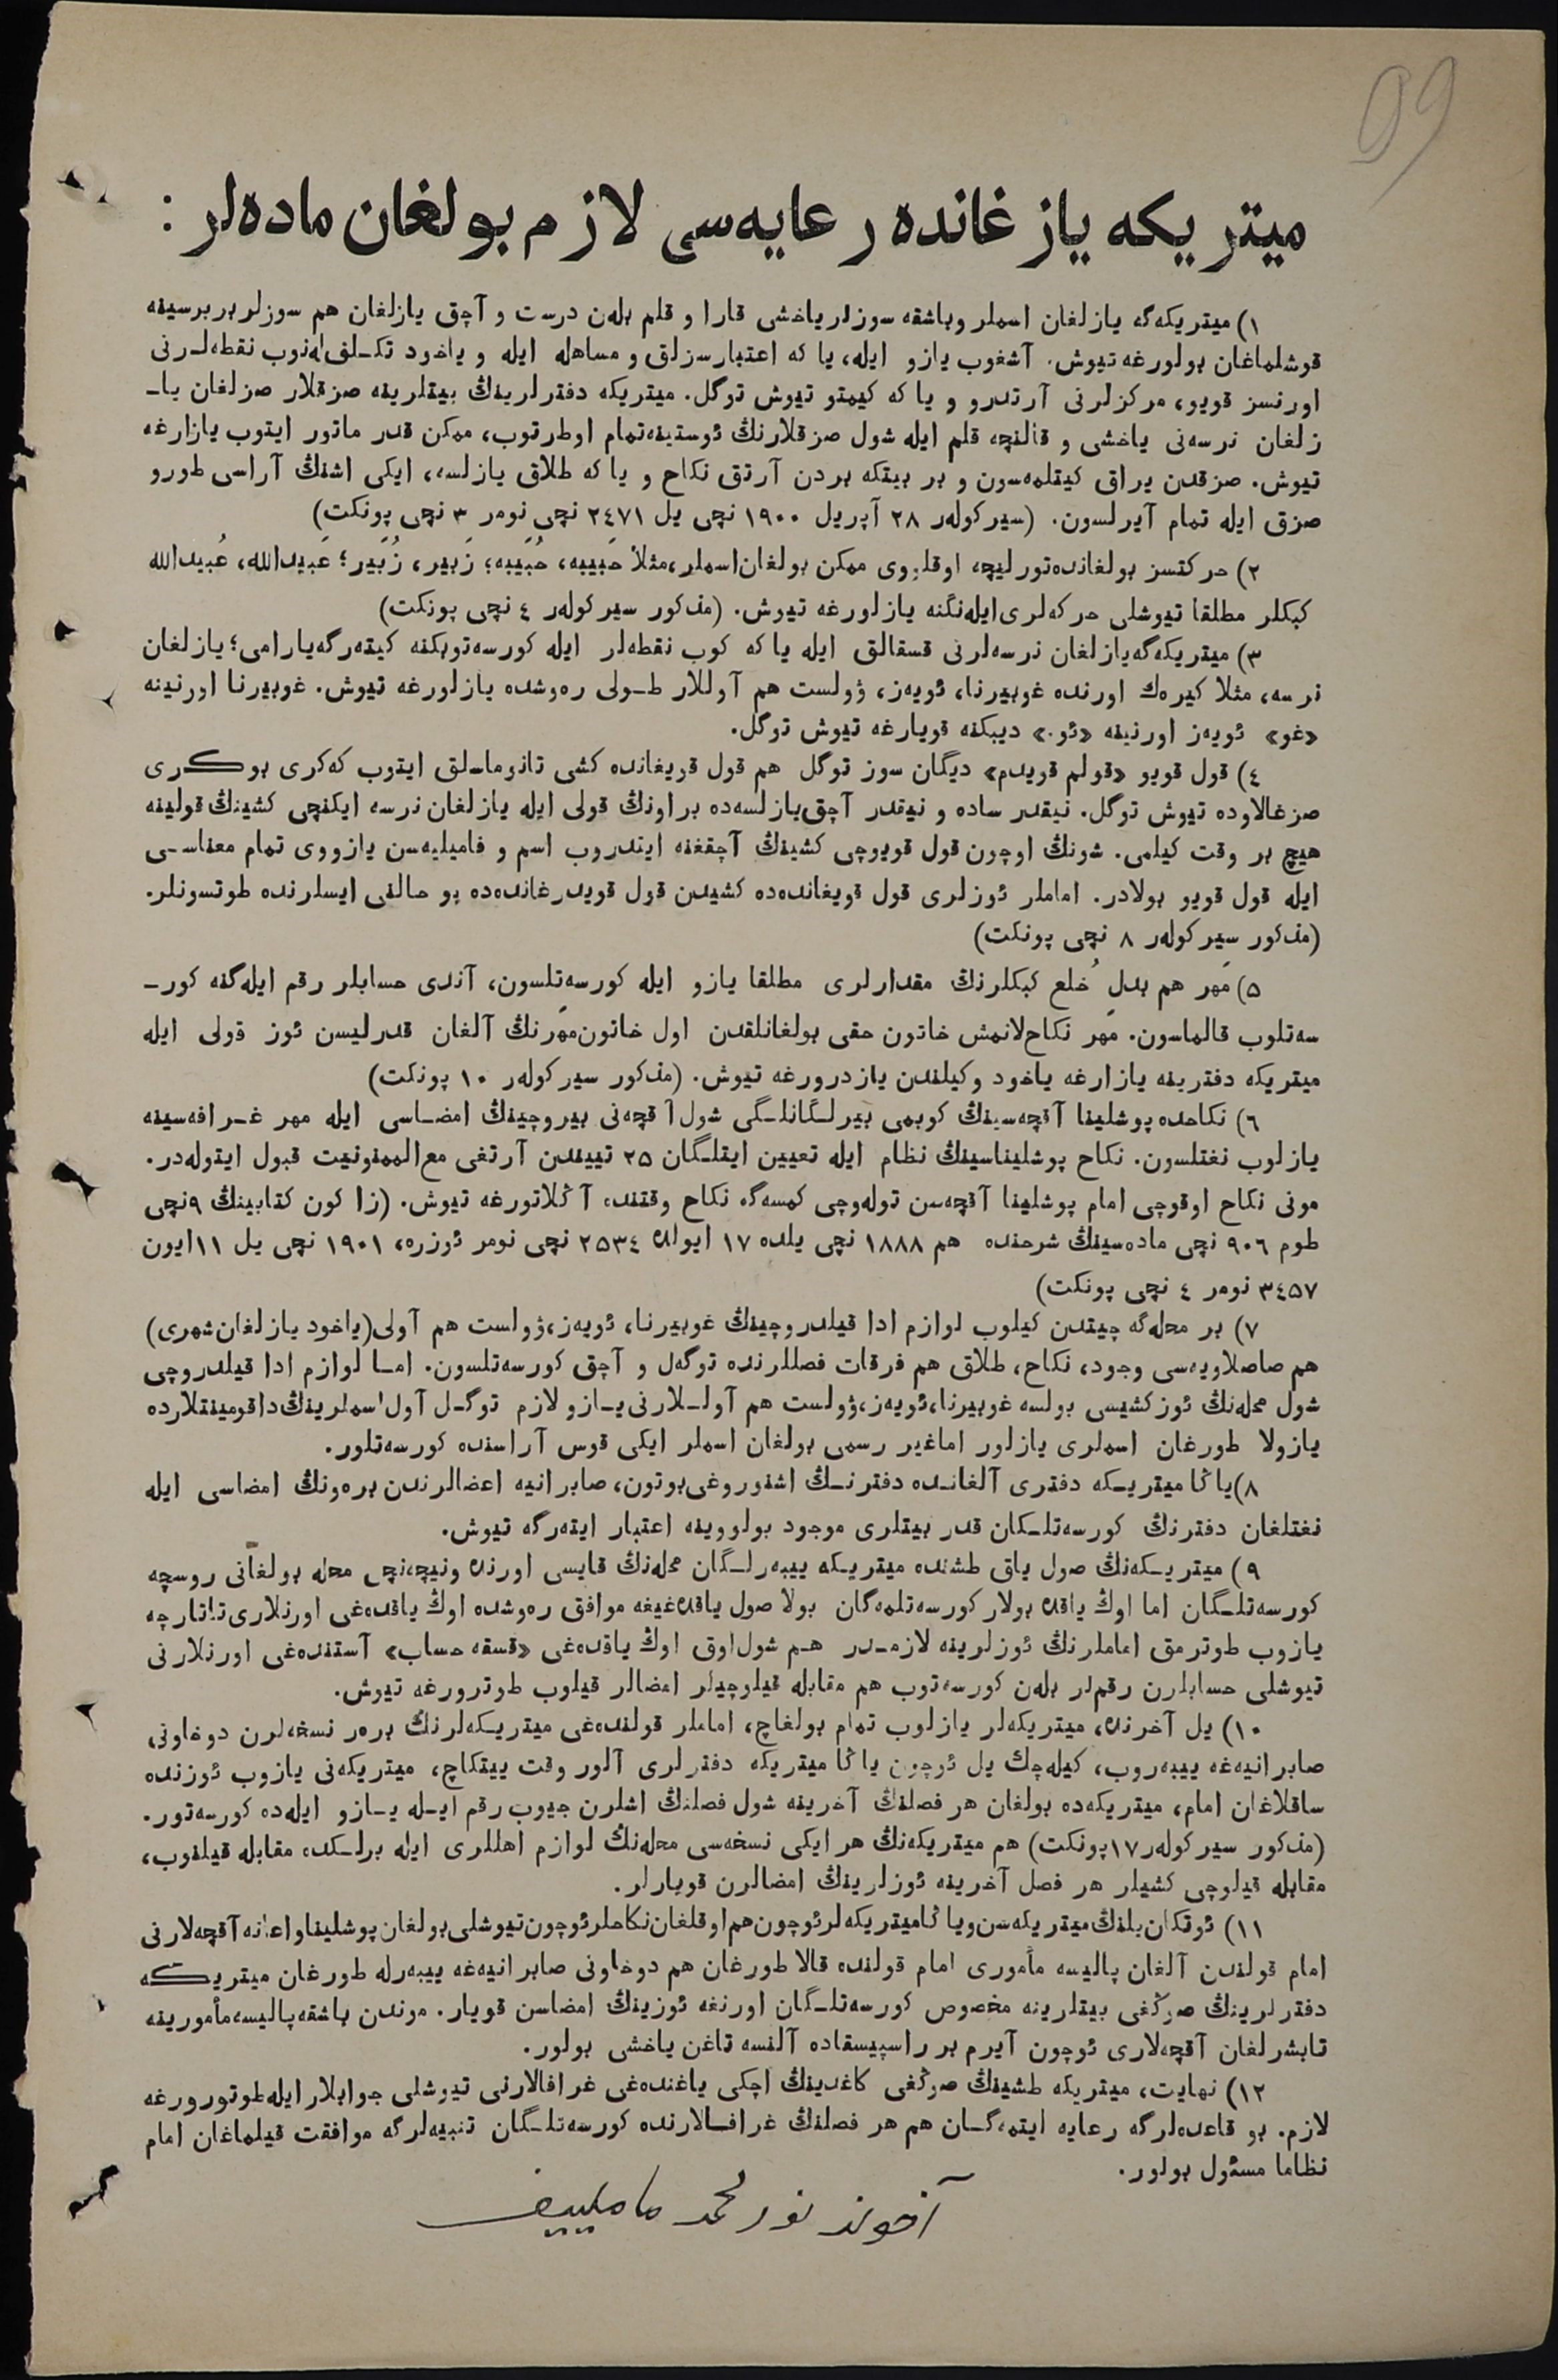 99
ميتريكه يازغانده رعايه‌سى لازم بولغان ماده‌لر :
١) ميتريكه‌گه يازلغان اسملر وباشقه سوزلر ياخشى قارا و قلم بله‌ن درست و آچق يازلغان هم سوزلر بر برسينه
قوشلماغان بولورغه تيوش. آشغوب يازو ايله، يا كه اعتبارسزلق و مساهله ايله و ياخود تكـلف له‌نوب نقطه‌لـرنى
اورنسز قويو، مركزلرنى آرتدرو و يا كه كيمتو تيوش توگل. ميتريكه دفترلرينڭ بيتلرينه صزقلار صزلغان ياـ
زلغان نرسه‌نى ياخشى و قالنچه قلم ايله شول صزقلارنڭ ئوستينه‌تمام اوطرتوب، ممكن قدر ماتور ايتوب يازارغه
تيوش. صزقدن يراق كيتلمه‌سون و بر بيتكه بردن آرتق نكاح و يا كه طلاق يازلسه، ايكى اشنڭ آراسى طورو
صزق ايله تمام آيرلسون. (سيركولەر ٢٨ آپريل ١٩٠٠ نچى يل ٢٤٧١ نچى نومر ٣ نچى پونكت)
٢) حركتسز بولغانده‌تورليچه اوقلووى ممكن بولغان‌اسملر،مثلاً حَبيبه، حُبَيبه؛ زَبير، زُبَير؛ عَبيدالله، عُبيدالله
كبكلر مطلقا تيوشلى حركه‌لرى‌ايله‌نگنه يازلورغه تيوش. (مذكور سيركولەر ٤ نچى پونكت)
٣) ميتريكه‌گه‌يازلغان نرسه‌لرنى قسقالق ايله يا كه كوب نقطه‌لر ايله كورسه‌توبكنه كيته‌رگه‌يارامى؛ يازلغان
نرسه، مثلا كيره‌ك اورنده غوبيرنا، ئويه‌ز، ۋولست هم آوللار طـولى ره‌وشده يازلورغه تيوش. غوبيرنا اورنينه
«غو» ئويه‌ز اورنينه «ئو.» ديبكنه قويارغه تيوش توگل.
٤) قول قويو «قولم قويدم» ديگان سوز توگل هم قول قويغانده كشى تانوماـلق ايتوب كه‌كرى بوكـرى
صزغالاوده تيوش توگل. نيقدر ساده و نيقدر آچق‌يازلسه‌ده براونڭ قولى ايله يازلغان نرسه ايكنچى كشينڭ قولينه
هيچ بر وقت كيلمى. شونڭ اوچون قول قويوچى كشينڭ آچقغنه ايتدروب اسم و فاميليه‌سن يازووى تمام معناسـى
ايله قول قويو بولادر. اماملر ئوزلرى قول قويغانده‌ده كشيدن قول قويدرغانده‌ده بو حالنى ايسلرنده طوتسونلر.
(مذكور سيركولەر ٨ نچى پونكت)
٥) مَهر هم بدل خُلع كبكلرنڭ مقدارلرى مطلقا يازو ايله كورسه‌تلسون، آندى حسابلر رقم ايله‌گنه كورـ
سه‌تلوب قالماسون. مَهر نكاح‌لانمش خاتون حقى بولغانلقدن اول خاتون‌مَهرنڭ آلغان قدرليسن ئوز قولى ايله
ميتريكه دفترينه يازارغه ياخود وكيلندن يازدرورغه تيوش. (مذكور سيركولەر ١٠ پونكت)
٦) نكاحده پوشلينا آقچه‌سينڭ كوبمى بيرلـگانلـگى شول آقچه‌نى بيروچينڭ امضـاسى ايله مهر غـرافه‌سينه
يازلوب نغتلسون. نكاح پوشليناسينڭ نظام ايله تعيين ايتلـگان ٢٥ تييندن آرتغى مع‌الممنونيت قبول ايتوله‌در.
مونى نكاح اوقوچى امام پوشلينا آقچه‌سن توله‌وچى كمسه‌گه نكاح وقتنده آڭلاتورغه تيوش. (زاكون كتابينڭ ٩نچى
طوم ٩٠٦ نچى ماده‌سينڭ شرحنده هم ١٨٨٨ نچى يلده ١٧ ايولده ٢٥٣٤ نچى نومر ئوزره، ١٩٠١ نچى يل ١١ايون
٣٤٥٧ نومر ٤ نچى پونكت)
٧) بر محله‌گه چيتدن كيلوب لوازم ادا قيلدروچينڭ غوبيرنا، ئويه‌ز،ۋولست هم آولى(ياخود يازلغان‌شهرى)
هم صاصلاويه‌سى وجود، نكاح، طلاق هم فرقات فصللرنده توگه‌ل و آچق كورسه‌تلسون. امـا لوازم ادا قيلدروچى
شول محله‌نڭ ئوز كشيسى بولسه غوبيرنا،ئويه‌ز،ۋولست هم آولـلارنى يـازو لازم توگـل آول اسملرينڭ‌داقومينتلارده
يازولا طورغان اسملرى يازلور اماغير رسمى بولغان اسملر ايكى قوس آراسنده كورسه‌تلور.
٨)ياڭا ميتريـكه دفترى آلغانـده دفترنـڭ اشنوروغى‌بوتون، صابرانيه اعضالرندن بره‌ونڭ امضاسى ايله
نغتلغان دفترنڭ كورسه‌تلـكان قدر بيتلرى موجود بولووينه اعتبار ايته‌رگه تيوش.
٩) ميتريـكه‌نڭ صول ياق طشنده ميتريـكه ييبه‌رلـگان محله‌نڭ قايسى اورنده ونيچه‌نچى محله بولغانى روسچه
كورسه‌تلـگان اما اوڭ ياقده بولار كورسه‌تلمه‌گان بولا صول ياقده‌غيغه موافق ره‌وشده اوڭ ياقده‌غى اورنلارى‌تاتارچه
يازوب طوترمق اماملرنڭ ئوزلرينه لازمـدر هـم شول‌اوق اوڭ ياقده‌غى «قسقه حساب» آستنده‌غى اورنلارنى
تيوشلى حسابلرن رقم‌لر بله‌ن كورسه‌توب هم مقابله قيلوچيلر امضالر قيلوب طوترورغه تيوش.
١٠) يل آخرنده، ميتريكه‌لر يازلوب تمام بولغاچ، اماملر قولنده‌غى ميتريـكه‌لرنڭ بره‌ر نسخه‌لرن دوخاونى
صابرانيه‌غه ييبه‌روب، كيله‌چك يل ئوچون ياڭا ميتريكه دفترلرى آلور وقت ييتكاچ، ميتريكه‌نى يازوب ئوزنده
ساقلاغان امام، ميتريكه‌ده بولغان هر فصلنڭ آخرينه شول فصلنڭ اشلرن جيوب رقم ايـله يـازو ايله‌ده كورسه‌تور.
(مذكور سيركولەر ١٧پونكت) هم ميتريكه‌نڭ هر ايكى نسخه‌سى محله‌نڭ لوازم اهللرى ايله برلـكده مقابله قيلنوب،
مقابله قيلوچى كشيلر هر فصل آخرينه ئوزلرينڭ امضالرن قويارلر.
١١) ئوتكان‌يلنڭ‌ميتريكه‌سن‌وياڭاميتريكه‌لرئوچون‌هم‌اوقلغان‌نكاحلرئوچون‌تيوشلى‌بولغان‌پوشليناواعانه‌آقچه‌لارنى
امام قولندن آلغان پاليسه مأمورى امام قولنده قالا طورغان هم دوخاونى صابرانيه‌غه ييبه‌رله طورغان ميتريـكه
دفترلرينڭ صوڭغى بيتلرينه مخصوص كورسه‌تلـگان اورنغه ئوزينڭ امضاسن قويار. موندن باشقه‌پاليسه‌مأمورينه
تابشرلغان آقچه‌لارى ئوچون آيرم بر راسپيسقاده آلنسه تاغن ياخشى بولور.
١٢) نهايت، ميتريكه طشينڭ صوڭغى كاغدينڭ اچكى ياغنده‌غى غرافالارنى تيوشلى جوابلار ايله‌طوتورورغه
لازم. بو قاعده‌لرگه رعايه ايتمه‌گـان هم هر فصلنڭ غرافـالارنده كورسه‌تلـگان تنبيه‌لرگه موافقت قيلماغان امام
نظاما مسئول بولور.
آخوند نورمحمد مامليیف